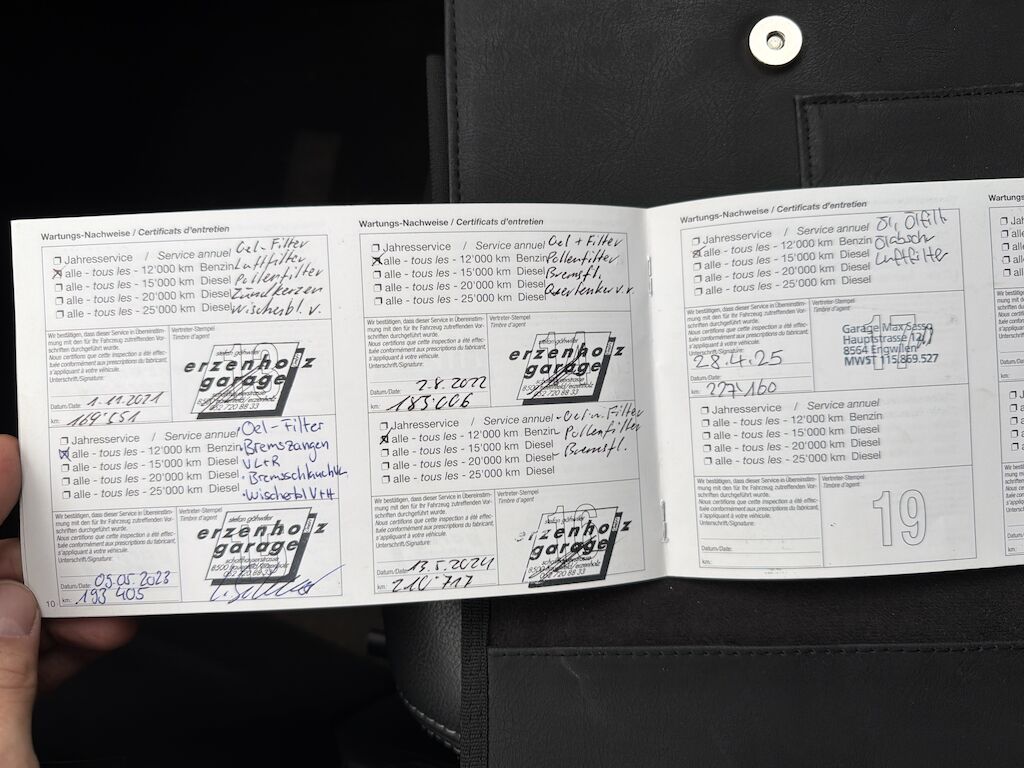 Wartungs-Nachweise / Certificats d'entretien
Jahresservice / Service annuel
alle - tous les - 12'000 km Benzin
alle - tous les - 15'000 km Diesel
alle - tous les - 20'000 km Diesel
alle - tous les - 25'000 km Diesel
Oel-Filter
Luftfilter
Pollenfilter
Zündkerzen
Wischerbl. v.
Wir bestätigen, dass dieser Service in Übereinstim-
mung mit den für Ihr Fahrzeug zutreffenden Vor-
schriften durchgeführt wurde.
Nous certifions que cette inspection a été effec-
tuée conformément aux prescriptions du fabricant,
s'appliquant à votre véhicule.
Unterschrift/Signature:
Vertreter-Stempel
Timbre d'agent
stefan gähwiler
erzenholz
garage
8500
052 720 88 33
Datum/Date: 1.11.2021
km: 169'551
Jahresservice / Service annuel
alle - tous les - 12'000 km Benzin
alle - tous les - 15'000 km Diesel
alle - tous les - 20'000 km Diesel
alle - tous les - 25'000 km Diesel
Oel-Filter
Bremszangen
V L+R
Bremsschläuche
Wischerbl V+H
Wir bestätigen, dass dieser Service in Übereinstim-
mung mit den für Ihr Fahrzeug zutreffenden Vor-
schriften durchgeführt wurde.
Nous certifions que cette inspection a été effec-
tuée conformément aux prescriptions du fabricant,
s'appliquant à votre véhicule.
Unterschrift/Signature:
Vertreter-Stempel
Timbre d'agent
stefan gähwiler
erzenholz
garage
schaffhauserstrasse
8500 frauenfeld/erzenholz
052 720 88 33
Datum/Date: 05.05.2023
km: 193 405
10
Wartungs-Nachweise / Certificats d'entretien
Jahresservice / Service annuel
alle - tous les - 12'000 km Benzin
alle - tous les - 15'000 km Diesel
alle - tous les - 20'000 km Diesel
alle - tous les - 25'000 km Diesel
Oel + Filter
Pollenfilter
Bremsfl.
Querlenker v.v.
Wir bestätigen, dass dieser Service in Übereinstim-
mung mit den für Ihr Fahrzeug zutreffenden Vor-
schriften durchgeführt wurde.
Nous certifions que cette inspection a été effec-
tuée conformément aux prescriptions du fabricant,
s'appliquant à votre véhicule.
Unterschrift/Signature:
Vertreter-Stempel
Timbre d'agent
erzenholz
garage
052 720 88 33
Datum/Date: 2.8.2022
km: 183'006
Jahresservice / Service annuel
alle - tous les - 12'000 km Benzin
alle - tous les - 15'000 km Diesel
alle - tous les - 20'000 km Diesel
alle - tous les - 25'000 km Diesel
Oel n. Filter
Pollenfilter
Bremsfl.
Wir bestätigen, dass dieser Service in Übereinstim-
mung mit den für Ihr Fahrzeug zutreffenden Vor-
schriften durchgeführt wurde.
Nous certifions que cette inspection a été effec-
tuée conformément aux prescriptions du fabricant,
s'appliquant à votre véhicule.
Unterschrift/Signature:
Vertreter-Stempel
Timbre d'agent
stefan gähwiler
erzenholz
garage
052 720 88 33
Datum/Date: 13.5.2024
km: 210'717
Wartungs-Nachweise / Certificats d'entretien
Jahresservice / Service annuel
alle - tous les - 12'000 km Benzin
alle - tous les - 15'000 km Diesel
alle - tous les - 20'000 km Diesel
alle - tous les - 25'000 km Diesel
Öl, Ölfilt
Ölabschr
Luftfilter
Wir bestätigen, dass dieser Service in Übereinstim-
mung mit den für Ihr Fahrzeug zutreffenden Vor-
schriften durchgeführt wurde.
Nous certifions que cette inspection a été effec-
tuée conformément aux prescriptions du fabricant,
s'appliquant à votre véhicule.
Unterschrift/Signature:
Vertreter-Stempel
Timbre d'agent
17
Garage Max Sasso
Hauptstrasse
8564 Engwilen
MWST 115.869.527
28.4.25
Datum/Date:
km: 227'160
Jahresservice / Service annuel
alle - tous les - 12'000 km Benzin
alle - tous les - 15'000 km Diesel
alle - tous les - 20'000 km Diesel
alle - tous les - 25'000 km Diesel
Wir bestätigen, dass dieser Service in Übereinstim-
mung mit den für Ihr Fahrzeug zutreffenden Vor-
schriften durchgeführt wurde.
Nous certifions que cette inspection a été effec-
tuée conformément aux prescriptions du fabricant,
s'appliquant à votre véhicule.
Unterschrift/Signature:
Vertreter-Stempel
Timbre d'agent
19
Datum/Date:
km:
Wartungs-